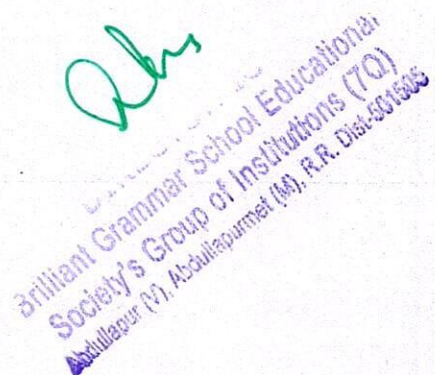 Brilliant Grammar School Educational
Society's Group of Institutions (7Q)
Abdullapur (V), Abdullapurmet (M), R.R. Dist-501505